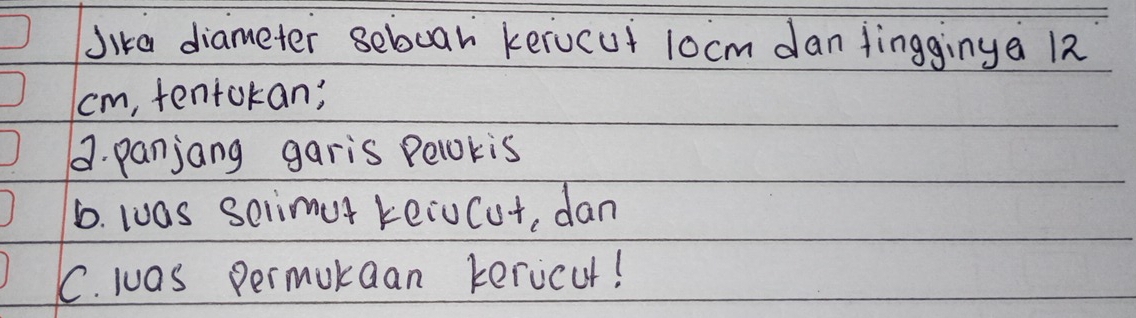 Jika diameter sebuah kerucut 10cm dan tingginya 12
cm, tentukan:
a. panjang garis Pelukis
b. luas selimut kerucut, dan
C. luas Permukaan kerucut!